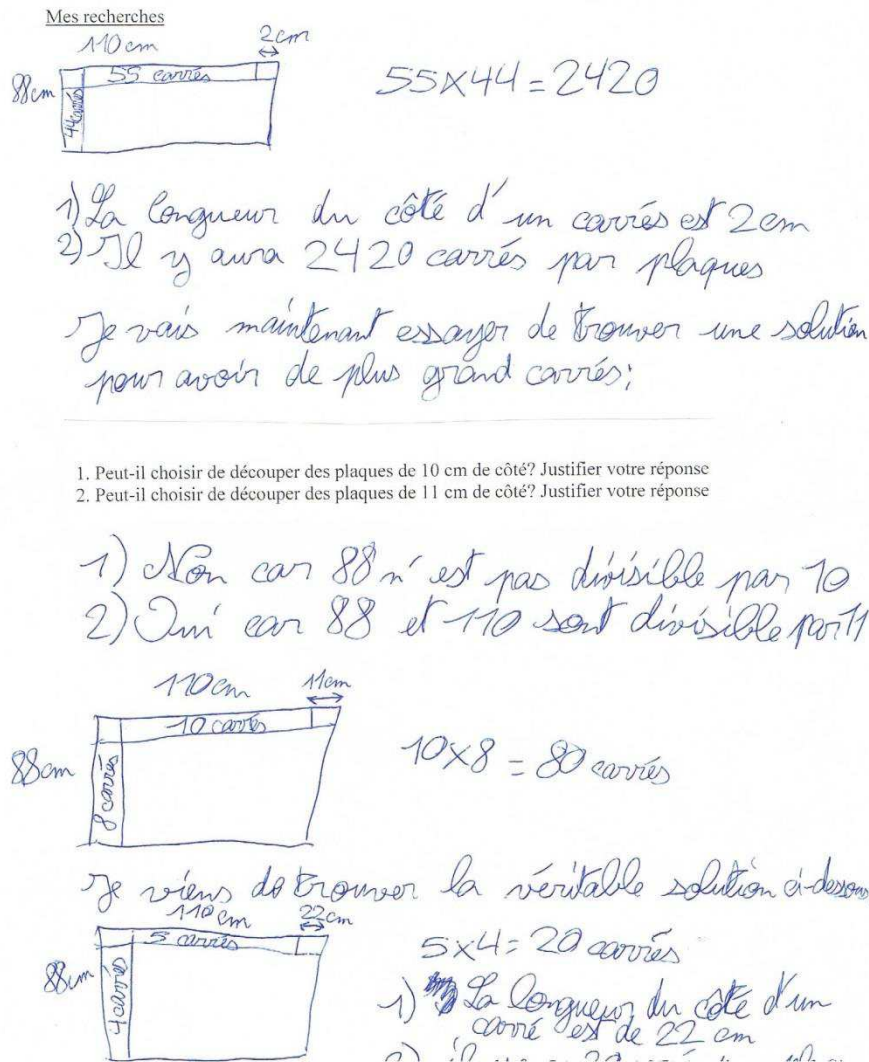 Mes recherches
110cm 2cm
88cm 55 carrés 55x44=2420
44 carrés
1) La longueur du côté d'un carrés est 2cm
2) Il y aura 2420 carrés par plaques
Je vais maintenant essayer de trouver une solution
pour avoir de plus grand carrés;
1. Peut-il choisir de découper des plaques de 10 cm de côté? Justifier votre réponse
2. Peut-il choisir de découper des plaques de 11 cm de côté? Justifier votre réponse
1) Non car 88 n'est pas divisible par 10
2) Oui car 88 et 110 sont divisible par 11
110cm 11cm
10 carrés
88cm 8 carrés 10x8 = 80 carrés
Je viens de trouver la véritable solution ci-dessous
110cm 22cm
5 carrés 5x4=20 carrés
88cm 4 carrés
1) La longueur du côté d'un
carré est de 22 cm
2) il y